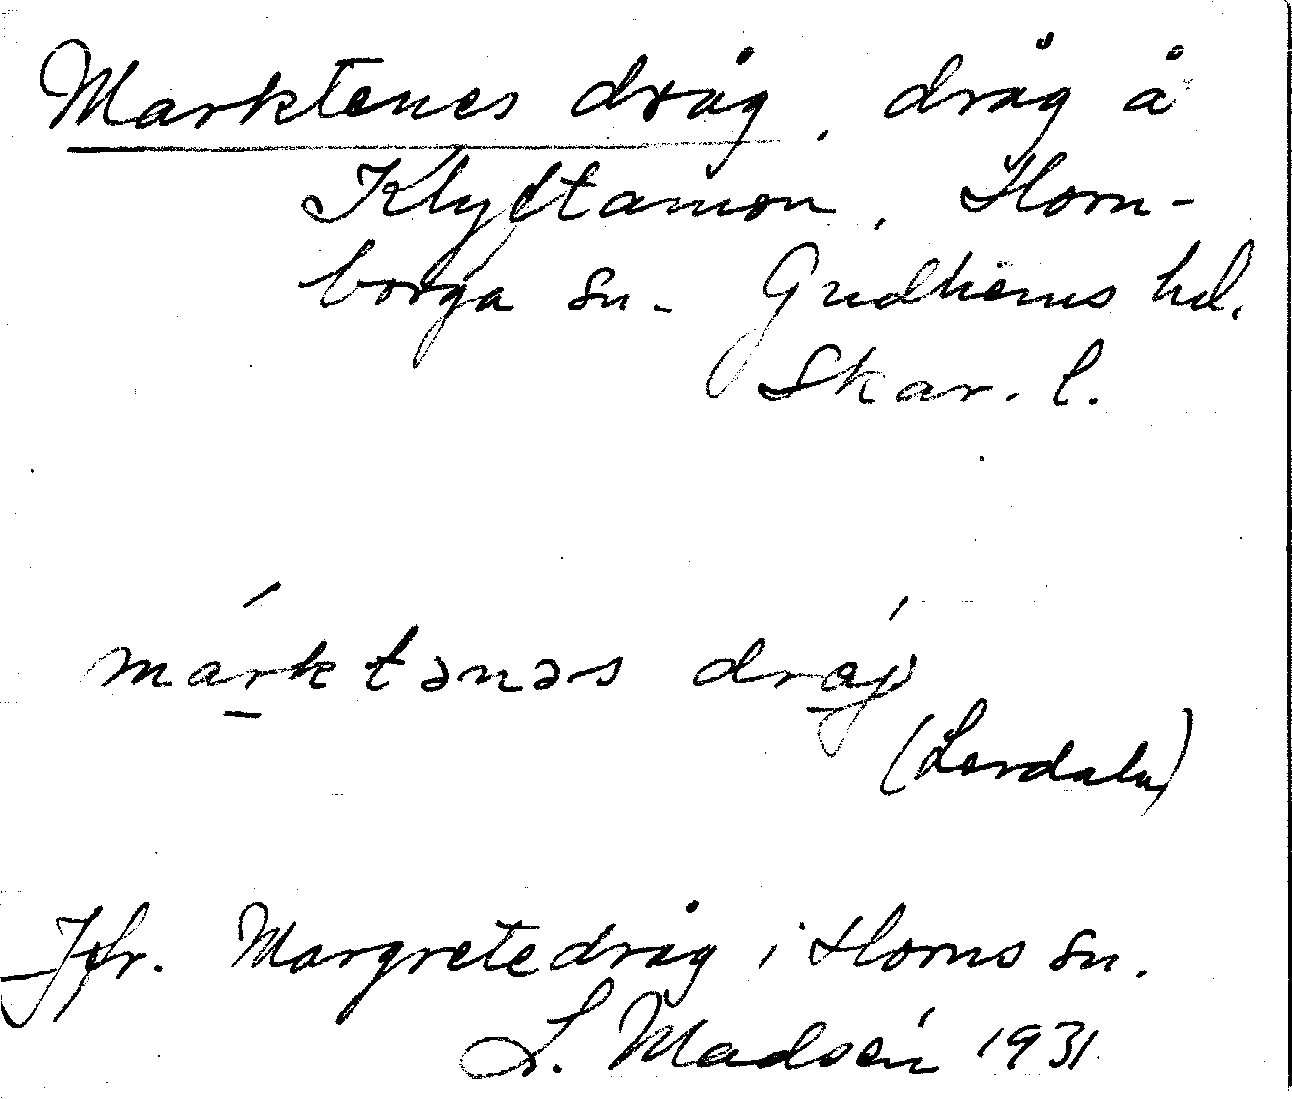 Marktenes dråg, dråg å
Klyftamon, Horn-
borga sn. Gudhems hd.
Skar. l.
márktənəs dráj
(Lerdala)
Jfr. Margretedråg i Horns sn.
L. Madsén 1931